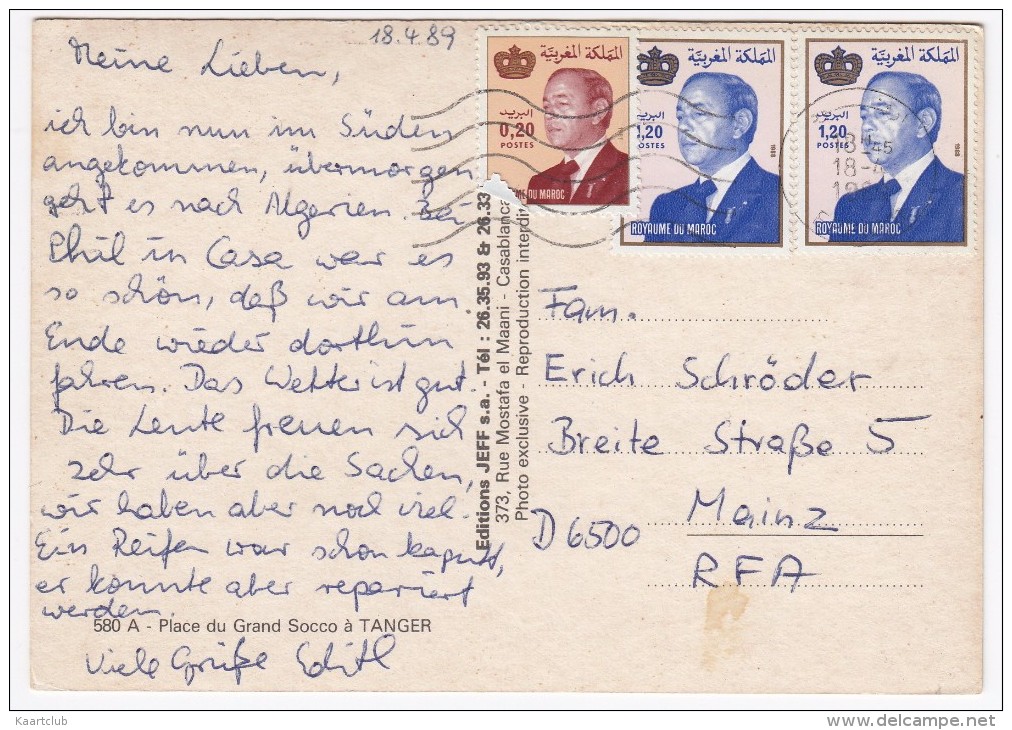 18.4.89
Meine Lieben,
ich bin nun im Süden
angekommen, übermorgen
geht es nach Algerien. Bei
Phil in Casa war es
so schön, daß wir am
Ende wieder dorthin
fahren. Das Wetter ist gut.
Die Leute freuen sich
sehr über die Sachen,
wir haben aber noch viel.
Ein Reifen war schon kaputt,
er konnte aber repariert
werden.
580 A - Place du Grand Socco à TANGER
Viele Grüße Edith
Editions JEFF s.a. - Tél : 26.35.93 & 26.33
373, Rue Mostafa el Maani - Casablanca
Photo exclusive - Reproduction interdi
المملكة المغربية
البريد
0,20
POSTES
ME DU MAROC
المملكة المغربية
1,20
POSTES
1988
ROYAUME DU MAROC
المملكة المغربية
البريد
1,20
POSTES
1988
ROYAUME DU MAROC
18 45
18-4
Fam.
Erich Schröder
Breite Straße 5
D 6500 Mainz
RFA
Kaartclub
delcampe.net